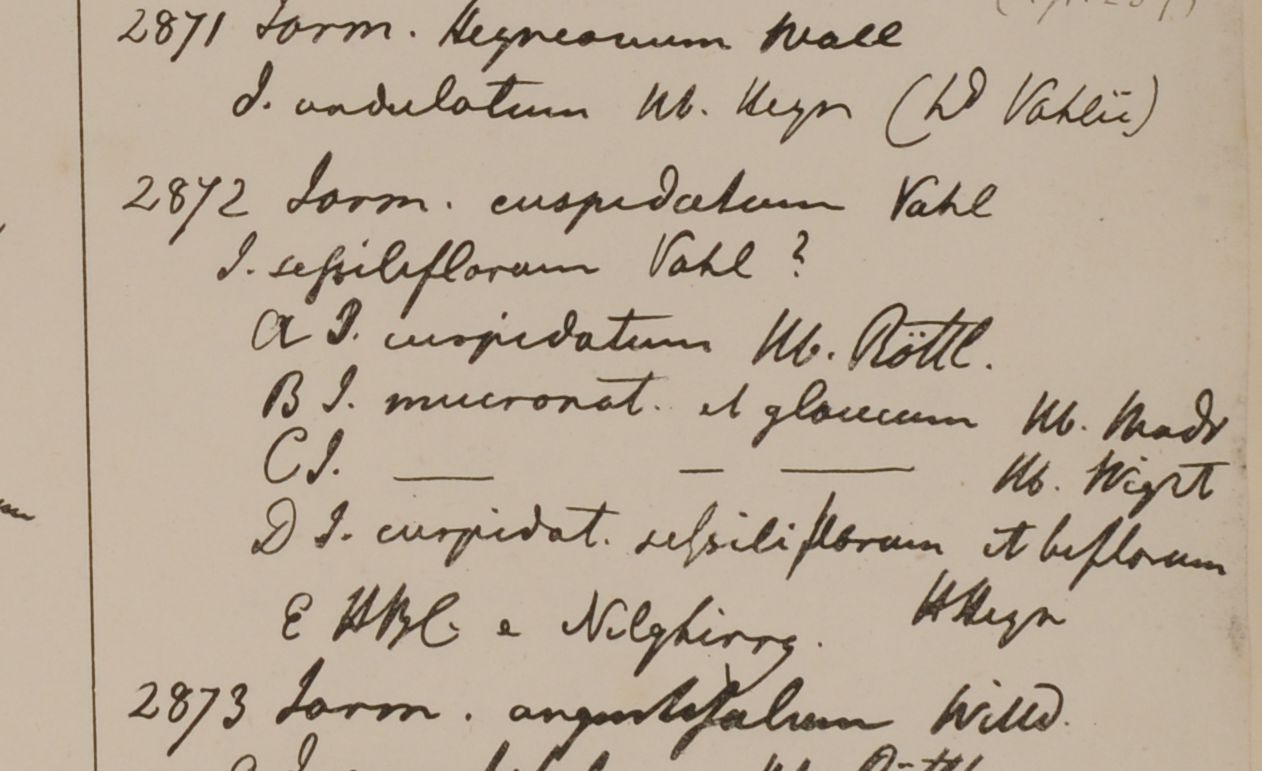 2871 Jasm. Heyneanum Wall
J. undulatum Hb. Heyn (hd Vahlii)
2872 Jasm. cuspidatum Vahl
J. sessiliflorum Vahl ?
A J. cuspidatum Hb. Röttl.
B J. mucronat. et glaucum Hb. Madr
C J. —— — —— Hb. Wight
D J. cuspidat. sessiliflorum et biflorum
HHeyn
E HBC. e Nilghirry.
2873 Jasm. angustifolium Willd.